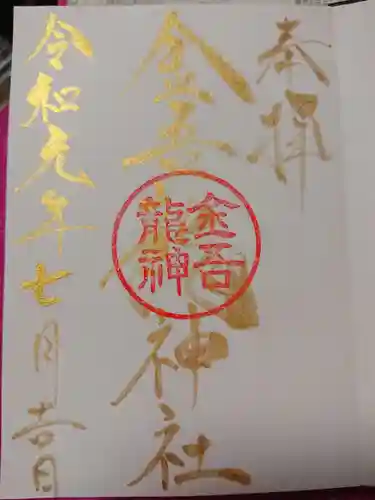 奉拝
金吾龍神社
金吾
龍神
令和元年七月吉日